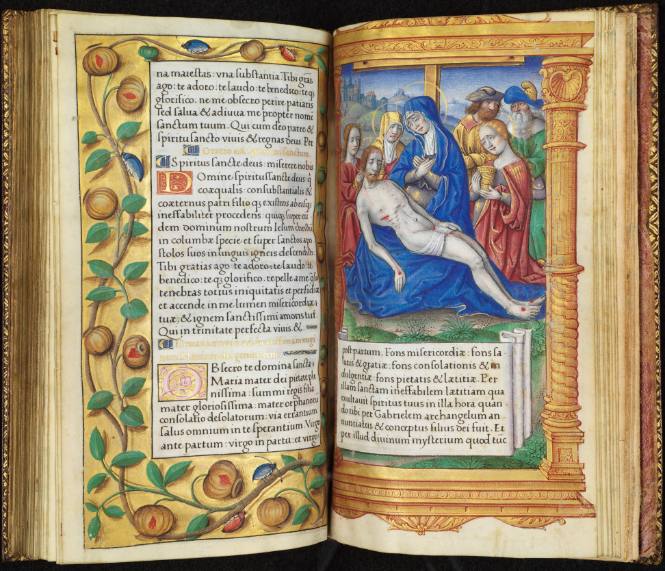 na maiestas: vna substantia. Tibi gras
ago: te adoro: te laudo: te benedico: te q;
glorifico. ne me obsecro perire patiaris
sed salua & adiuua me propter nomē
sanctum tuum. Qui cum deo patre &
spiritu sancto viuis & regnas deus. Per
Spiritus sancte deus: miserere nobis
Domine spiritus sancte deus: q
coæqualis consubstantialis &
coæternus patri filio q; existens ab eis q;
ineffabiliter procedens: qui super eū
dem dominum nostrum Iesum
in columbæ specie: et super sanctos apo
stolos tuos in linguis igneis descendisti:
Tibi gratias ago: te adoro: te laudo: te
benedico: te q; glorifico. repelle a me q̄so
tenebras totius iniquitatis et perfidiæ
et accende in me lumen misericordiæ
tuæ: & ignem sanctissimi amoris tui:
Qui in trinitate perfecta viuis &.
OBsecro te domina sancta
Maria mater dei pietate ple
nissima: summi regis filia
mater gloriosissima: mater orphanorū
consolatio desolatorum: via errantium
salus omnium in te sperantium. Virgo
ante partum: virgo in partu: et virgo
post partum. Fons misericordiæ: fons sa
lutis & gratiæ: fons consolationis & in
dulgentiæ: fons pietatis & lætitiæ. Per
illam sanctam ineffabilem lætitiam qua
exultauit spiritus tuus in illa hora quan
do tibi per Gabrielem archangelum an
nuntiatus & conceptus filius dei fuit. Et
per illud diuinum mysterium quod tūc